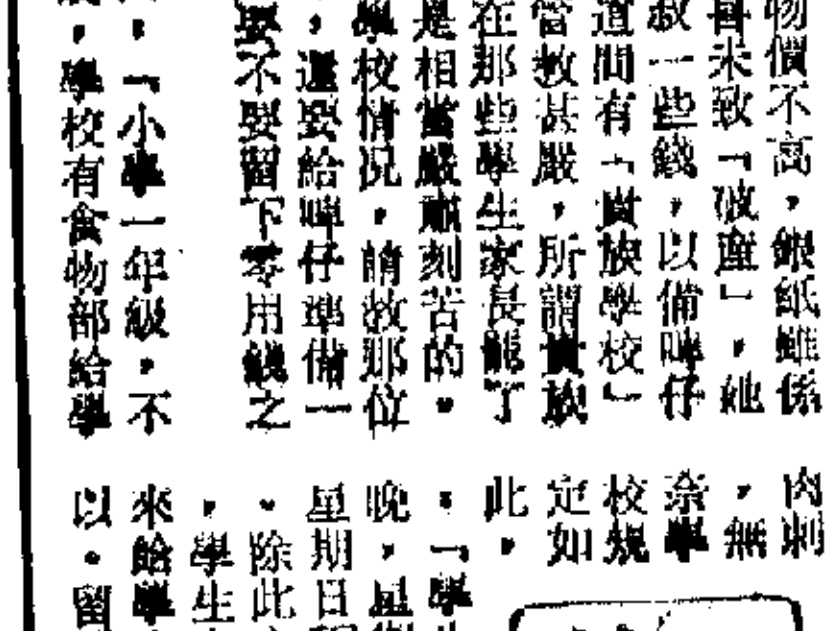 物價不高，銀紙雖係
未致「破產」，她
叔一些錢，以備啤仔
道間有「貴族學校」
管教甚嚴，所謂貴族
在那些學生家長龍了
是相當嚴肅刻苦的。
學校情况，請教那位
，還要給啤仔準備一
要不要留下零用錢之
，「小學一年級，不
，學校有食物部給學
肉刺
，無
奈學
校規
定如
此，
。「學
晚，星
星期日
。除此
，學生
來給學
以。留